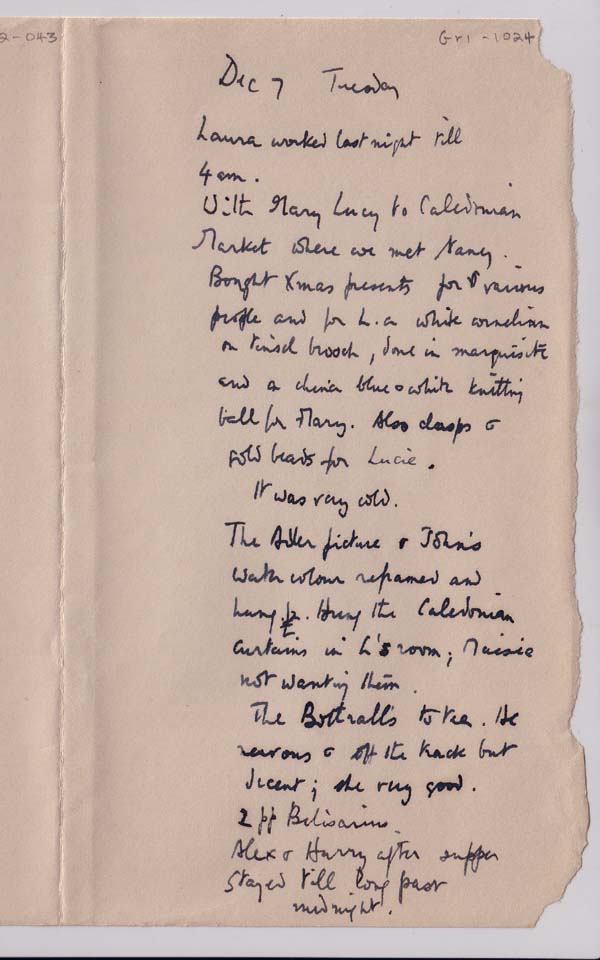 2-043
Gr1-1024
Dec 7 Tuesday
Laura worked last night till
4 am.
With Mary Lucy to Caledonian
Market where we met Nancy.
Bought Xmas presents for various
people and for L. a white cornelian
on tinsel brooch, done in marquisite
and a china blue & white knitting
ball for Mary. Also clasps &
gold beads for Lucie.
It was very cold.
The Adler picture & John's
water colour reframed and
hung. Hung the Caledonian
curtains in L's room; Maisie
not wanting them.
The Bottralls to tea. He
nervous & off the track but
decent; she very good.
2 pp Belisarius.
Alex & Harry after supper
stayed till long past
midnight.